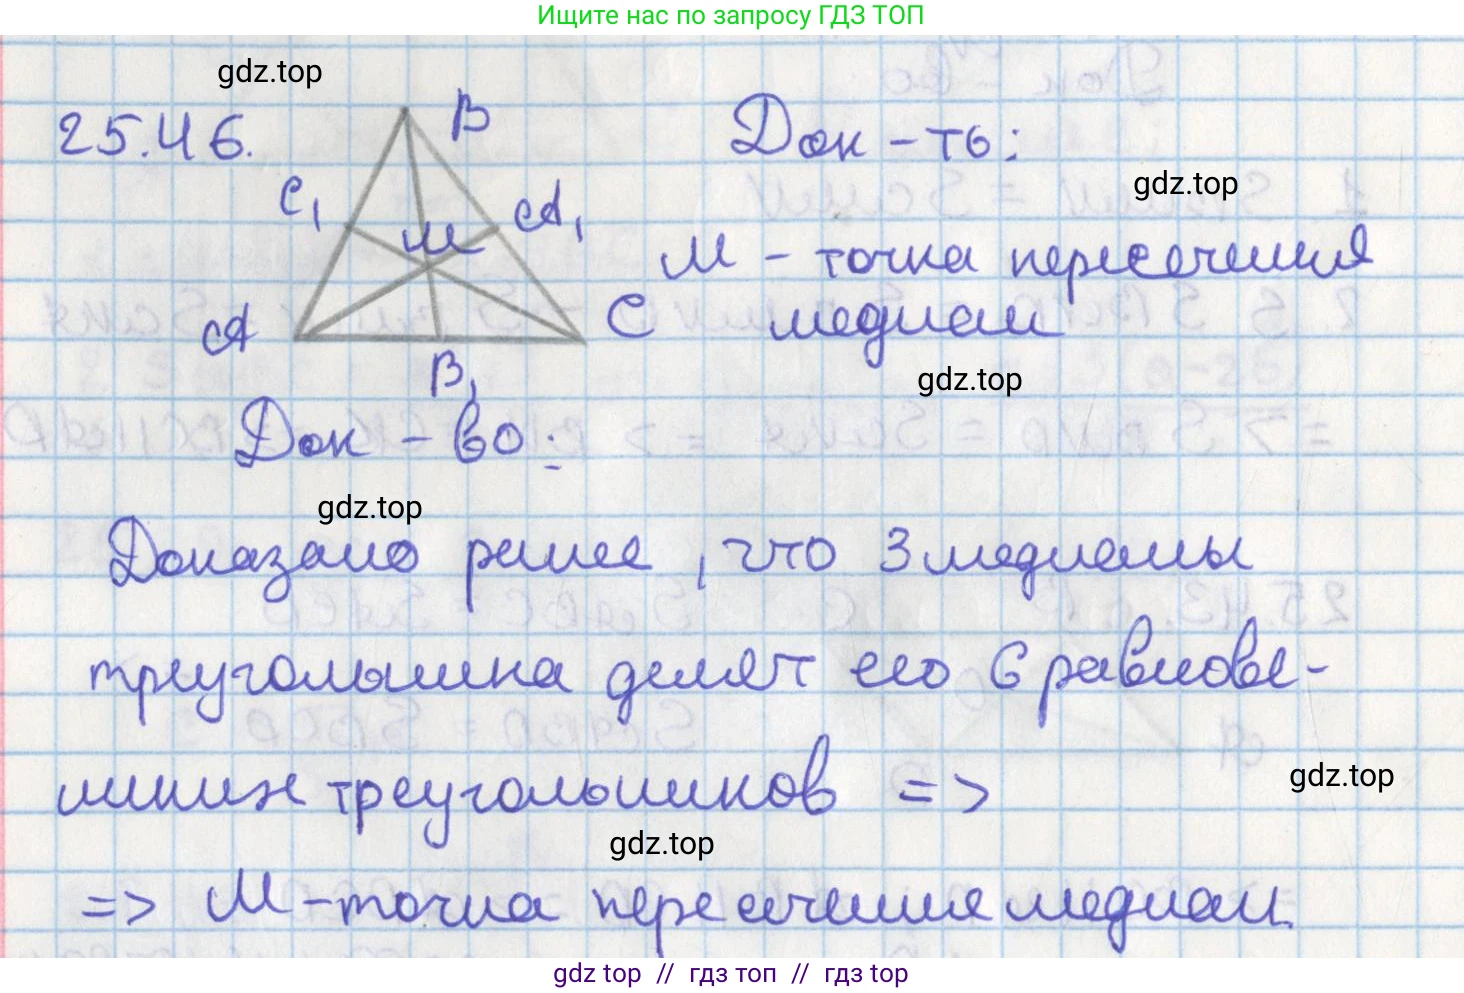 Ищите нас по запросу ГДЗ ТОП
gdz.top
25.46.
B
Док-ть:
C₁
A₁
gdz.top
M
M - точка пересечения
A
C
медиан
B₁
gdz.top
Док-во:
gdz.top
Доказано ранее, что 3 медианы
треугольника делят его 6 равнове-
ликих треугольников =>
gdz.top
gdz.top
=> M-точка пересечения медиан.
gdz top // гдз топ // гдз top